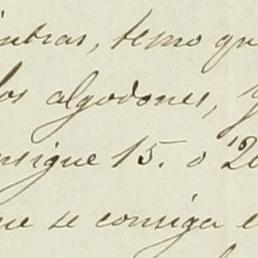 mbras, temo qu
los algodones, y
nsigue 15. o 20
ue se consiga e